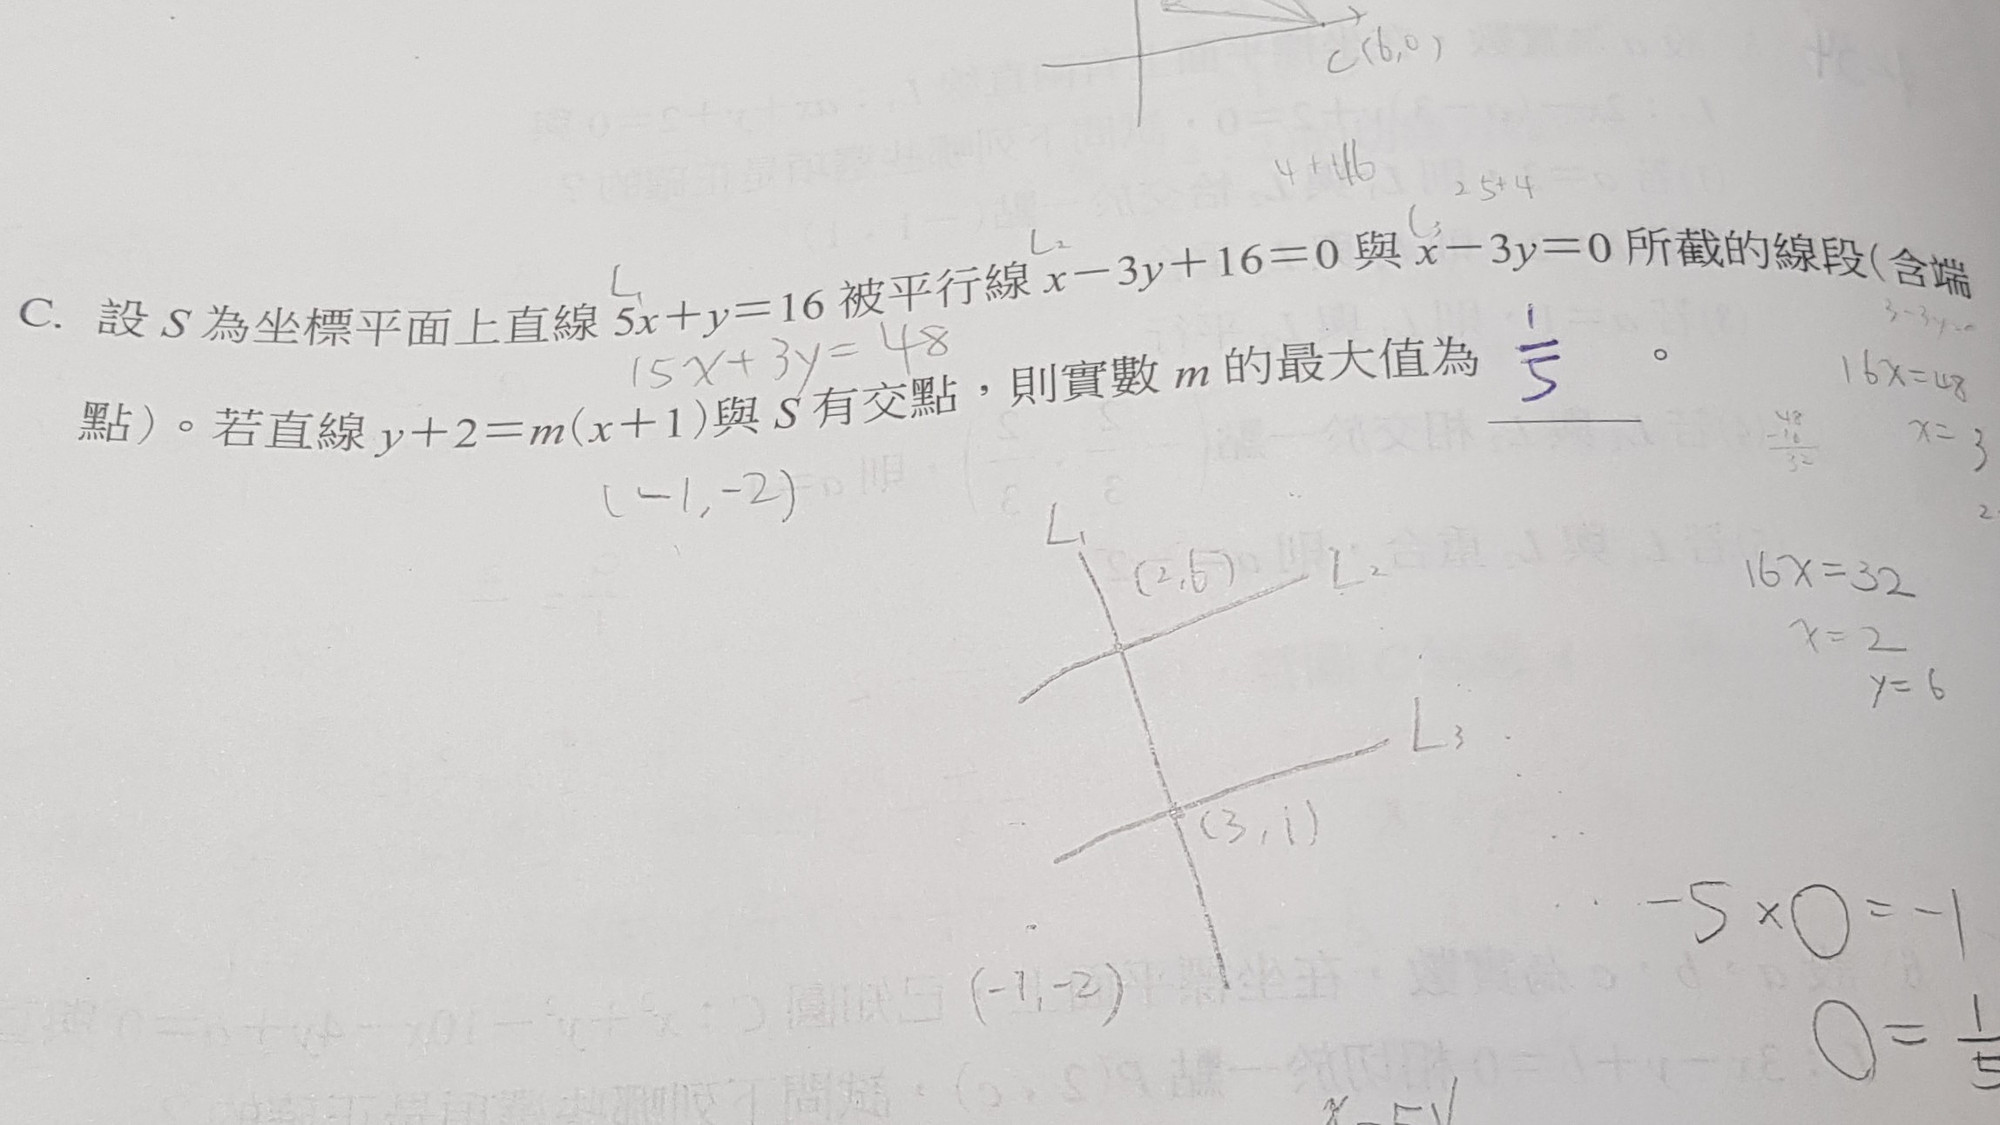 C(6,0)
4+46
25+4
L₂
L₃
L₁
C. 設 S 為坐標平面上直線 5x+y=16 被平行線 x-3y+16=0 與 x-3y=0 所截的線段(含端
15x+3y=48
3-3y=0
點)。若直線 y+2=m(x+1)與 S 有交點,則實數 m 的最大值為 1/5 。
16x=48
x=3
48
-16
32
(-1,-2)
L₁
(2,6)
L₂
16x=32
x=2
y=6
L₃
(3,1)
-5×0=-1
(-1,-2)
0=1/5
x-5y